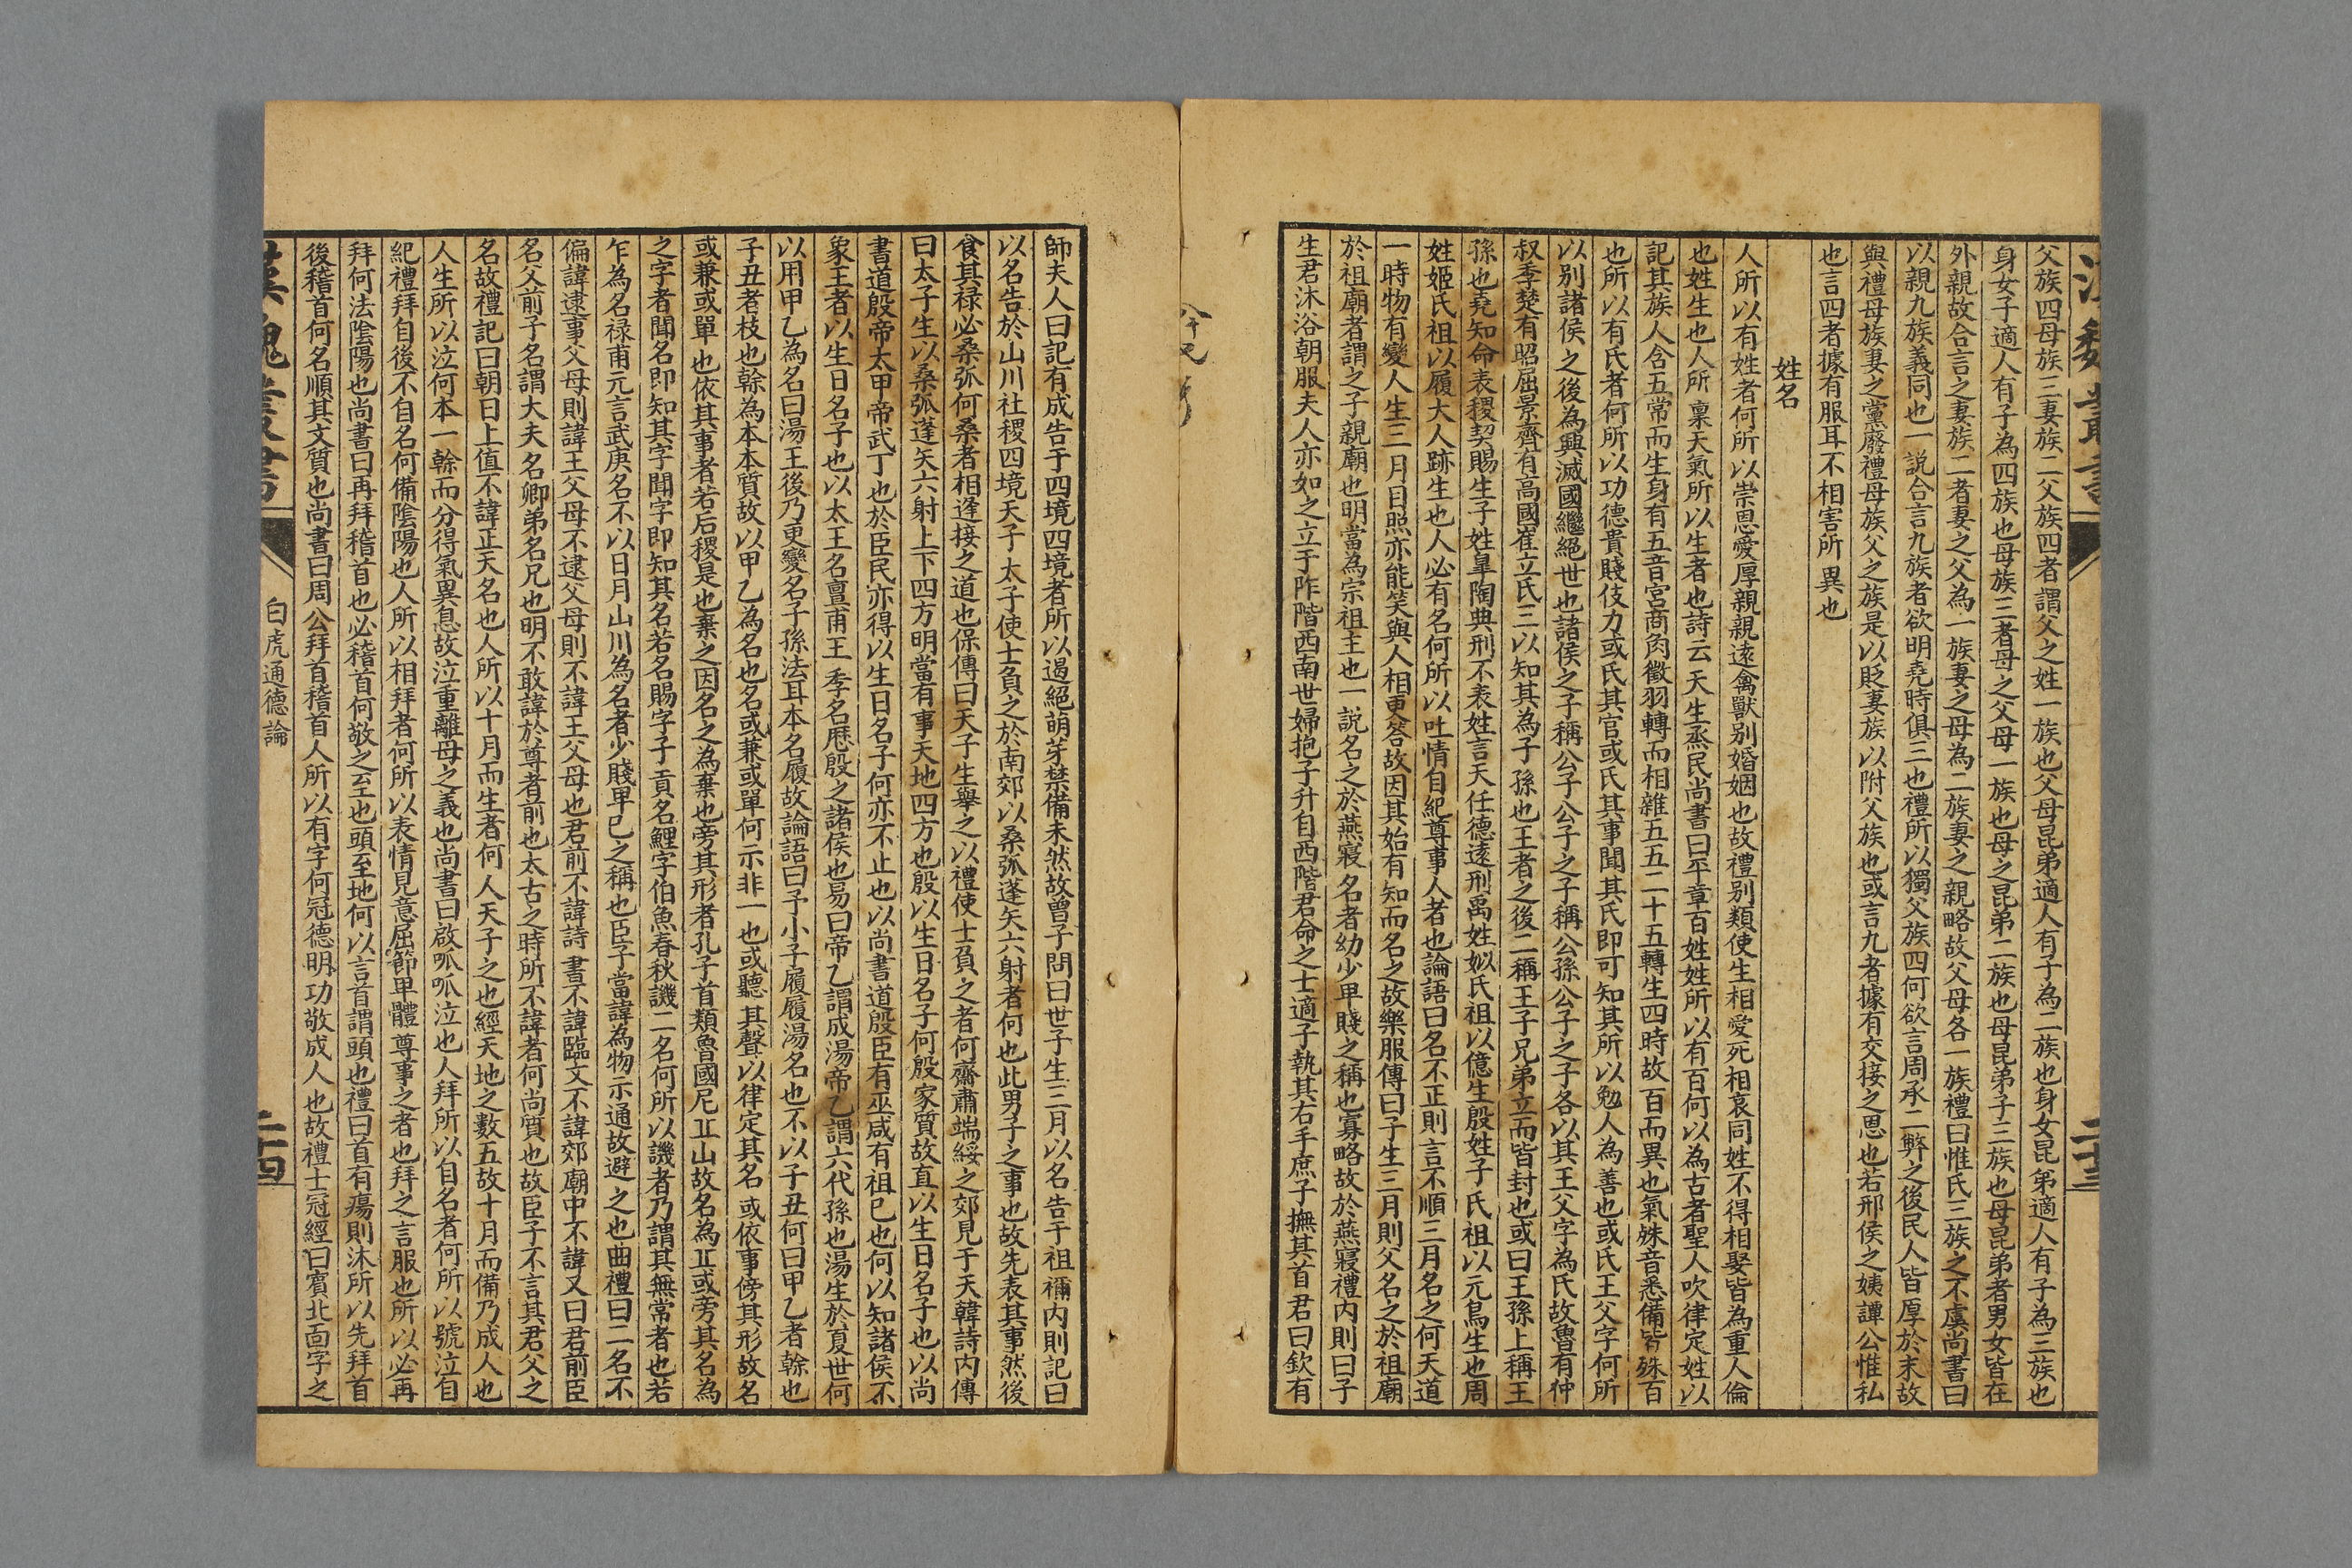 父族四母族三妻族二父族四者謂父之姓一族也父母昆弟適人有子為二族也身女昆弟適人有子為三族也
身女子適人有子為四族也母族三者母之父母一族也母之昆弟二族也母昆弟子三族也母昆弟者男女皆在
外親故合言之妻族二者妻之父為一族妻之母為二族妻之親略故父母各一族禮曰惟氏三族之不虞尚書曰
以親九族義同也一說合言九族者欲明堯時俱三也禮所以獨父族四何欲言周承二弊之後民人皆厚於末故
與禮母族妻之黨廢禮母族父之族是以貶妻族以附父族也或言九者據有交接之恩也若邢侯之姨譚公惟私
也言四者據有服耳不相害所異也
姓名
人所以有姓者何所以崇恩愛厚親親遠禽獸別婚姻也故禮別類使生相愛死相哀同姓不得相娶皆為重人倫
也姓生也人所稟天氣所以生者也詩云天生烝民尚書曰平章百姓姓所以有百何以為古者聖人吹律定姓以
記其族人含五常而生身有五音宮商角徵羽轉而相雜五五二十五轉生四時故百而異也氣殊音悉備皆殊百
也所以有氏者何所以功德貴賤伎力或氏其官或氏其事聞其氏即可知其所以勉人為善也或氏王父字何所
以別諸侯之後為興滅國繼絕世也諸侯之子稱公子公子之子稱公孫公子之子各以其王父字為氏故魯有仲
叔季楚有昭屈景齊有高國崔立氏三以知其為子孫也王者之後二稱王子兄弟立而皆封也或曰王孫上稱王
孫也堯知命表稷契賜生子姓皐陶典刑不表姓言天任德遠刑禹姓姒氏祖以億生殷姓子氏祖以元鳥生也周
姓姬氏祖以履大人跡生也人必有名何所以吐情自紀尊事人者也論語曰名不正則言不順三月名之何天道
一時物有變人生三月目照亦能笑與人相更答故因其始有知而名之故樂服傳曰子生三月則父名之於祖廟
於祖廟者謂之子親廟也明當為宗祖主也一說名之於燕寢名者幼少卑賤之稱也寡略故於燕寢禮內則曰子
生君沐浴朝服夫人亦如之立于阼階西南世婦抱子升自西階君命之士適子執其右手庶子撫其首君曰欽有
師夫人曰記有成告于四境四境者所以遏絕萌芽禁備未然故曾子問曰世子生三月以名告于祖禰內則記曰
以名告於山川社稷四境天子太子使士負之於南郊以桑弧蓬矢六射者何也此男子之事也故先表其事然後
食其祿必桑弧何桑者相逢接之道也保傅曰天子生舉之以禮使士負之者何齋肅端緌之郊見于天韓詩內傳
曰太子生以桑弧蓬矢六射上下四方明當有事天地四方也殷以生日名子何殷家質故直以生日名子也以尚
書道殷帝太甲帝武丁也於臣民亦得以生日名子何亦不止也以尚書道殷臣有巫咸有祖巳也何以知諸侯不
象王者以生日名子也以太王名亶甫王季名歷殷之諸侯也易曰帝乙謂成湯帝乙謂六代孫也湯生於夏世何
以用甲乙為名曰湯王後乃更變名子孫法耳本名履故論語曰予小子履履湯名也不以子丑何曰甲乙者榦也
子丑者枝也榦為本本質故以甲乙為名也名或兼或單何示非一也或聽其聲以律定其名或依事傍其形故名
或兼或單也依其事者若后稷是也棄之因名之為棄也旁其形者孔子首類魯國尼丘山故名為丘或旁其名為
之字者聞名即知其字聞字即知其名若名賜字子貢名鯉字伯魚春秋譏二名何所以譏者乃謂其無常者也若
乍為名祿甫元言武庚名不以日月山川為名者少賤卑己之稱也臣子當諱為物示通故避之也曲禮曰二名不
偏諱逮事父母則諱王父母不逮父母則不諱王父母也君前不諱詩書不諱臨文不諱郊廟中不諱又曰君前臣
名父前子名謂大夫名卿弟名兄也明不敢諱於尊者前也太古之時所不諱者何尚質也故臣子不言其君父之
名故禮記曰朝日上值不諱正天名也人所以十月而生者何人天子之也經天地之數五故十月而備乃成人也
人生所以泣何本一榦而分得氣異息故泣重離母之義也尚書曰啟呱呱泣也人拜所以自名者何所以號泣自
紀禮拜自後不自名何備陰陽也人所以相拜者何所以表情見意屈節卑體尊事之者也拜之言服也所以必再
拜何法陰陽也尚書曰再拜稽首也必稽首何敬之至也頭至地何以言首謂頭也禮曰首有瘍則沐所以先拜首
後稽首何名順其文質也尚書曰周公拜首稽首人所以有字何冠德明功敬成人也故禮士冠經曰賓北面字之
白虎通德論
二十四